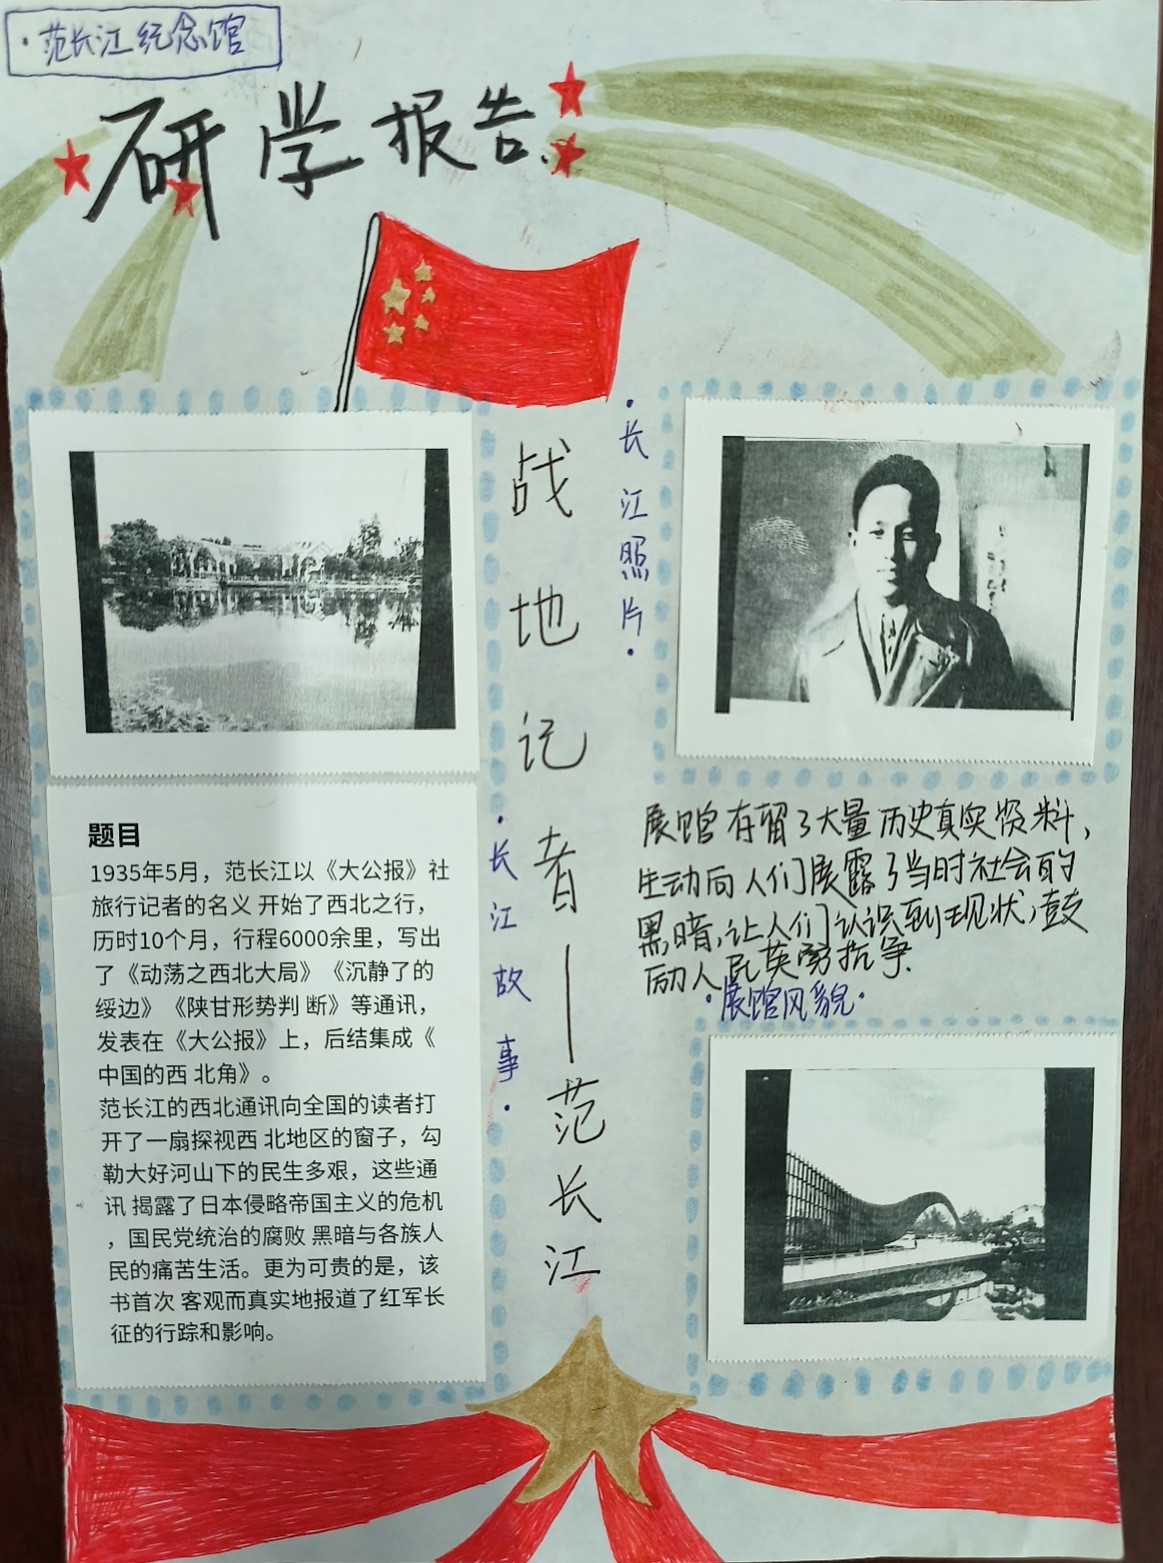 ·范长江纪念馆
研学报告
战地记者——范长江
·长江照片·
·长江故事·
题目
1935年5月，范长江以《大公报》社
旅行记者的名义 开始了西北之行，
历时10个月，行程6000余里，写出
了《动荡之西北大局》《沉静了的
绥边》《陕甘形势判 断》等通讯，
发表在《大公报》上，后结集成《
中国的西 北角》。
范长江的西北通讯向全国的读者打
开了一扇探视西 北地区的窗子，勾
勒大好河山下的民生多艰，这些通
讯 揭露了日本侵略帝国主义的危机
，国民党统治的腐败 黑暗与各族人
民的痛苦生活。更为可贵的是，该
书首次 客观而真实地报道了红军长
征的行踪和影响。
展馆存留了大量历史真实资料，
生动向人们展露了当时社会的
黑暗，让人们认识到现状，鼓
励人民英勇抗争.
·展馆风貌·